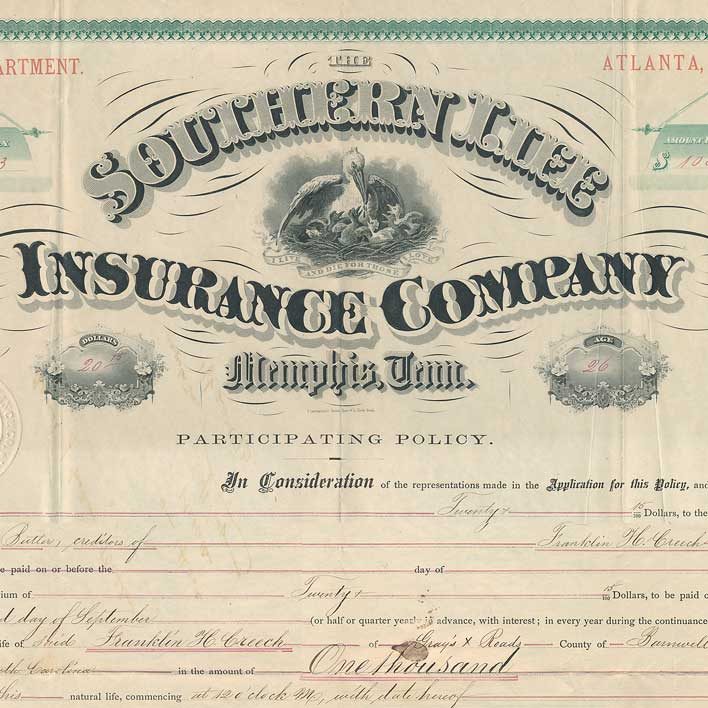 THE
ARTMENT.
ATLANTA,
SOUTHERN LIFE
AMOUNT
3
$ 10
I LIVE AND DIE FOR THOSE I LOVE
INSURANCE COMPANY
DOLLARS
20 15
AGE
26
Memphis, Tenn.
PARTICIPATING POLICY.
In Consideration of the representations made in the Application for this Policy, and
Twenty & 15/100 Dollars, to the
Butler, creditors of Franklin H. Creech
e paid on or before the day of
ium of Twenty & 15/100 Dollars, to be paid
d day of September (or half or quarter yearly in advance, with interest; in every year during the continuance
ife of said Franklin H. Creech of Gray's X Roads County of Barnwell
th Carolina in the amount of One thousand
his natural life, commencing at 12 o'clock M, with date hereof